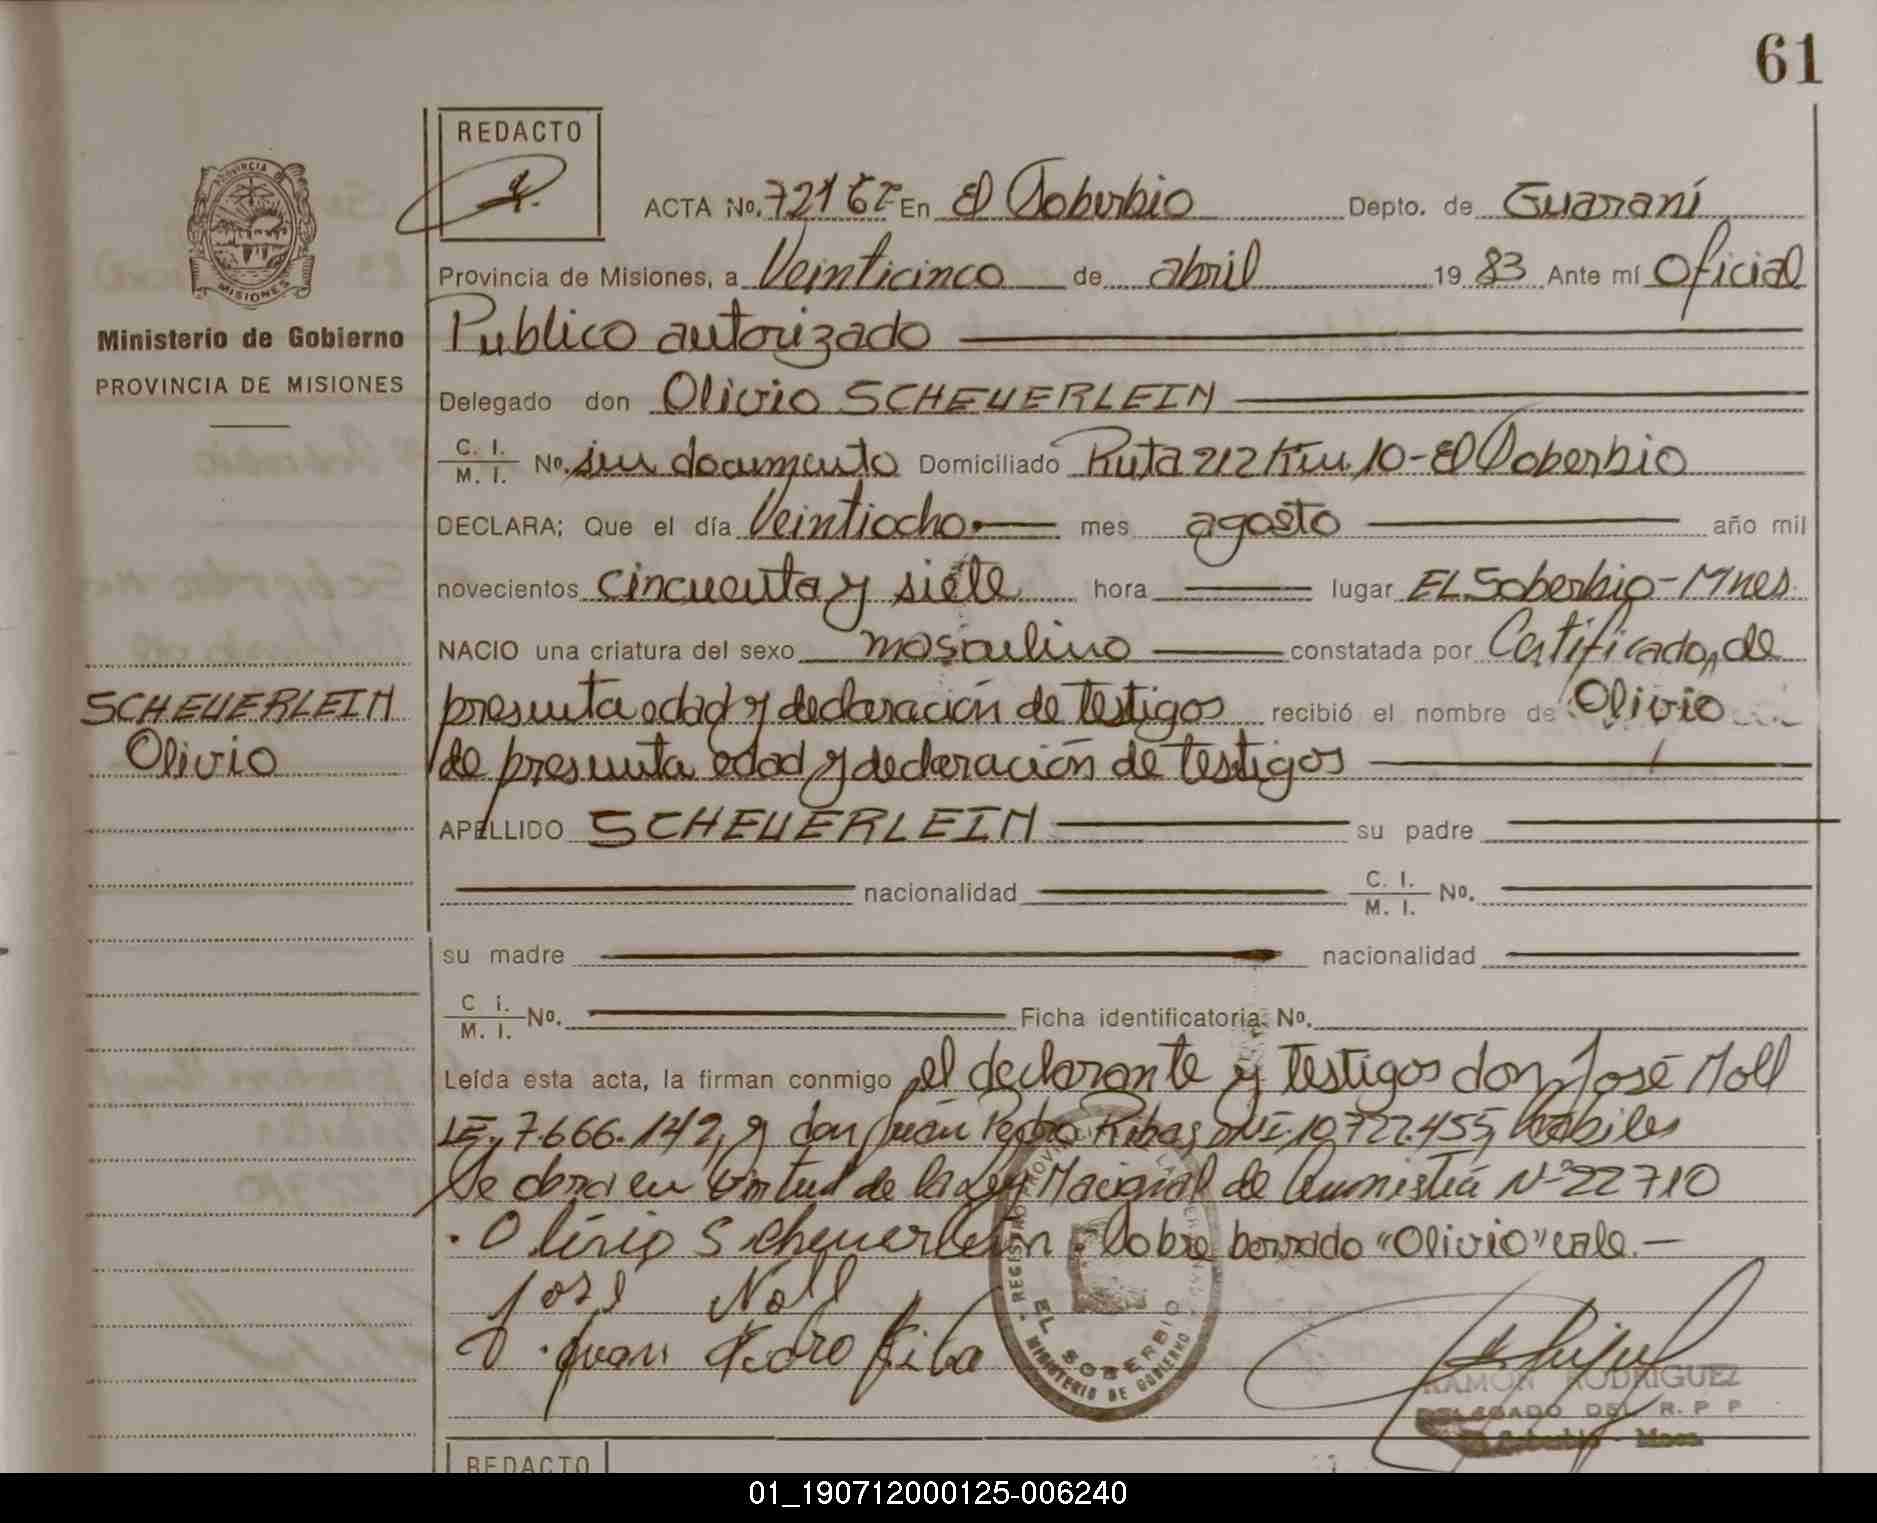 61
REDACTO
PROVINCIA DE
MISIONES
Ministerio de Gobierno
PROVINCIA DE MISIONES
ACTA No. 721 En El Soberbio Depto. de Guaraní
Provincia de Misiones, a Veinticinco de abril 1983 Ante mí Oficial
Publico autorizado
Delegado don Olivio SCHEUERLEIN
C. I. M. I. No. sin documento Domiciliado Ruta 212 Km. 10 - El Soberbio
DECLARA; Que el día Veintiocho mes agosto año mil
novecientos cincuenta y siete hora lugar EL Soberbio - Mnes.
NACIO una criatura del sexo masculino constatada por Certificado, de
SCHEUERLEIN
Olivio
presunta edad y declaración de testigos recibió el nombre de Olivio
de presunta edad y declaración de testigos
APELLIDO SCHEUERLEIN su padre
nacionalidad C. I. M. I. No.
su madre nacionalidad
C i. M. I. No. Ficha identificatoria No.
Leída esta acta, la firman conmigo el declarante y testigos don José Noll
LE. 7.666.142, y don Juan Pedro Ribas DNI. 10.722.455, habiles
Se obra en virtud de la Ley Nacional de Amnistia Nº 22710
Olivio Scheuerlein Sobre borrado "Olivio" vale.—
José Noll
Juan Pedro Riba
EL SOBERBIO
MINISTERIO DE GOBIERNO
RAMON RODRIGUEZ
DELEGADO DEL R. P P
El Soberbio - Mnes.
REDACTO
01_190712000125-006240